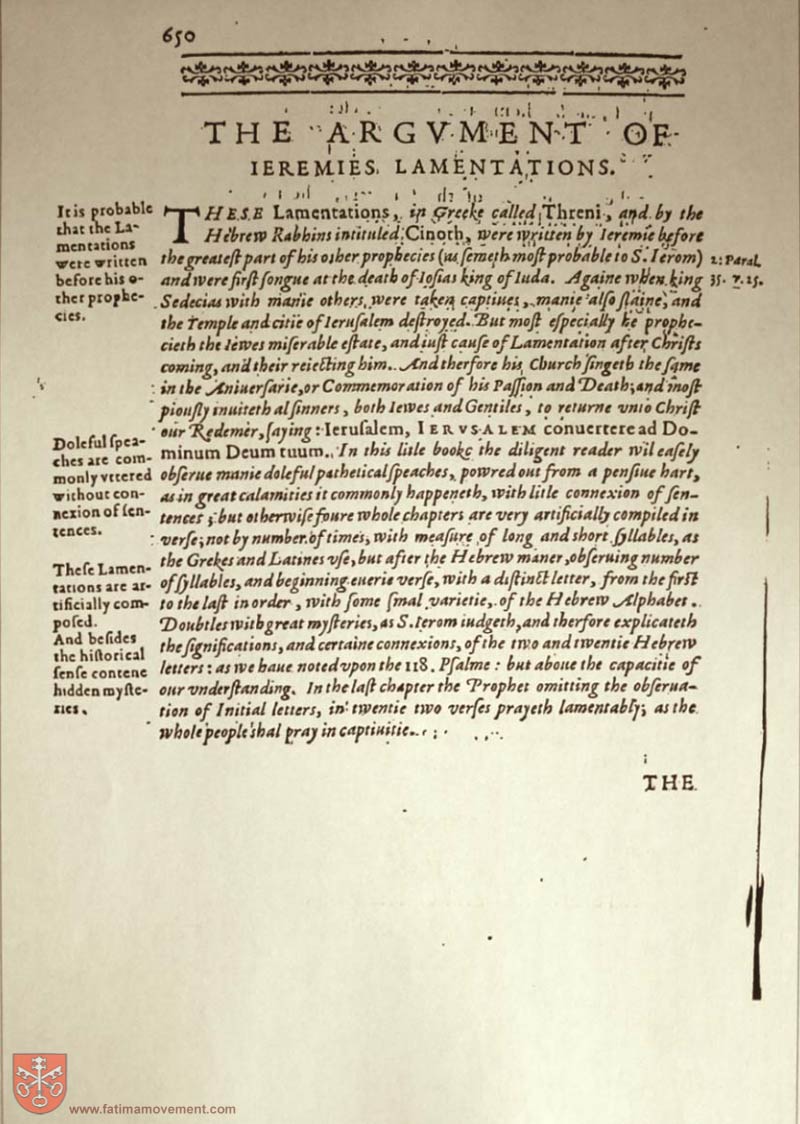 650
THE ARGVMENT OF
IEREMIES LAMENTATIONS.
It is probable
that the La-
mentations
were written
before his o-
ther prophe-
cies.
THESE Lamentations, in Greeke called Threni, and by the
Hebrew Rabbins intituled Cinoth, were written by Ieremie before
the greatest part of his other prophecies (as semeth most probable to S. Ierom)
and were first songue at the death of Iosias king of Iuda. Againe when king
Sedecias with manie others were taken captiues, manie also slaine, and
the Temple and citie of Ierusalem destroyed. But most especially he prophe-
cieth the Iewes miserable estate, and iust cause of Lamentation after Christs
coming, and their reiecting him. And therfore his Church singeth the same
in the Aniuersarie, or Commemoration of his Passion and Death; and most
piously inuiteth al sinners, both Iewes and Gentiles, to returne vnto Christ
our Redemer, saying: Ierusalem, IERVSALEM conuertere ad Do-
minum Deum tuum. In this litle booke the diligent reader wil easely
obserue manie doleful pathetical speaches, powred out from a pensiue hart,
as in great calamities it commonly happeneth, with litle connexion of sen-
tences; but otherwise foure whole chapters are very artificially compiled in
verse; not by number of times, with measure of long and short syllables, as
the Grekes and Latines vse, but after the Hebrew maner, obseruing number
of syllables, and beginning euerie verse, with a distinct letter, from the first
to the last in order, with some smal varietie, of the Hebrew Alphabet.
Doubtles with great mysteries, as S. Ierom iudgeth, and therfore explicateth
the significations, and certaine connexions, of the two and twentie Hebrew
letters: as we haue noted vpon the 118. Psalme: but aboue the capacitie of
our vnderstanding. In the last chapter the Prophet omitting the obserua-
tion of Initial letters, in twentie two verses prayeth lamentably; as the
whole people shal pray in captiuitie.
2. Paral.
35. v. 25.
Doleful spea-
ches are com-
monly vttered
without con-
nexion of sen-
tences.
These Lamen-
tations are ar-
tificially com-
posed.
And besides
the historical
sense contene
hidden myste-
ries.
THE
www.fatimamovement.com